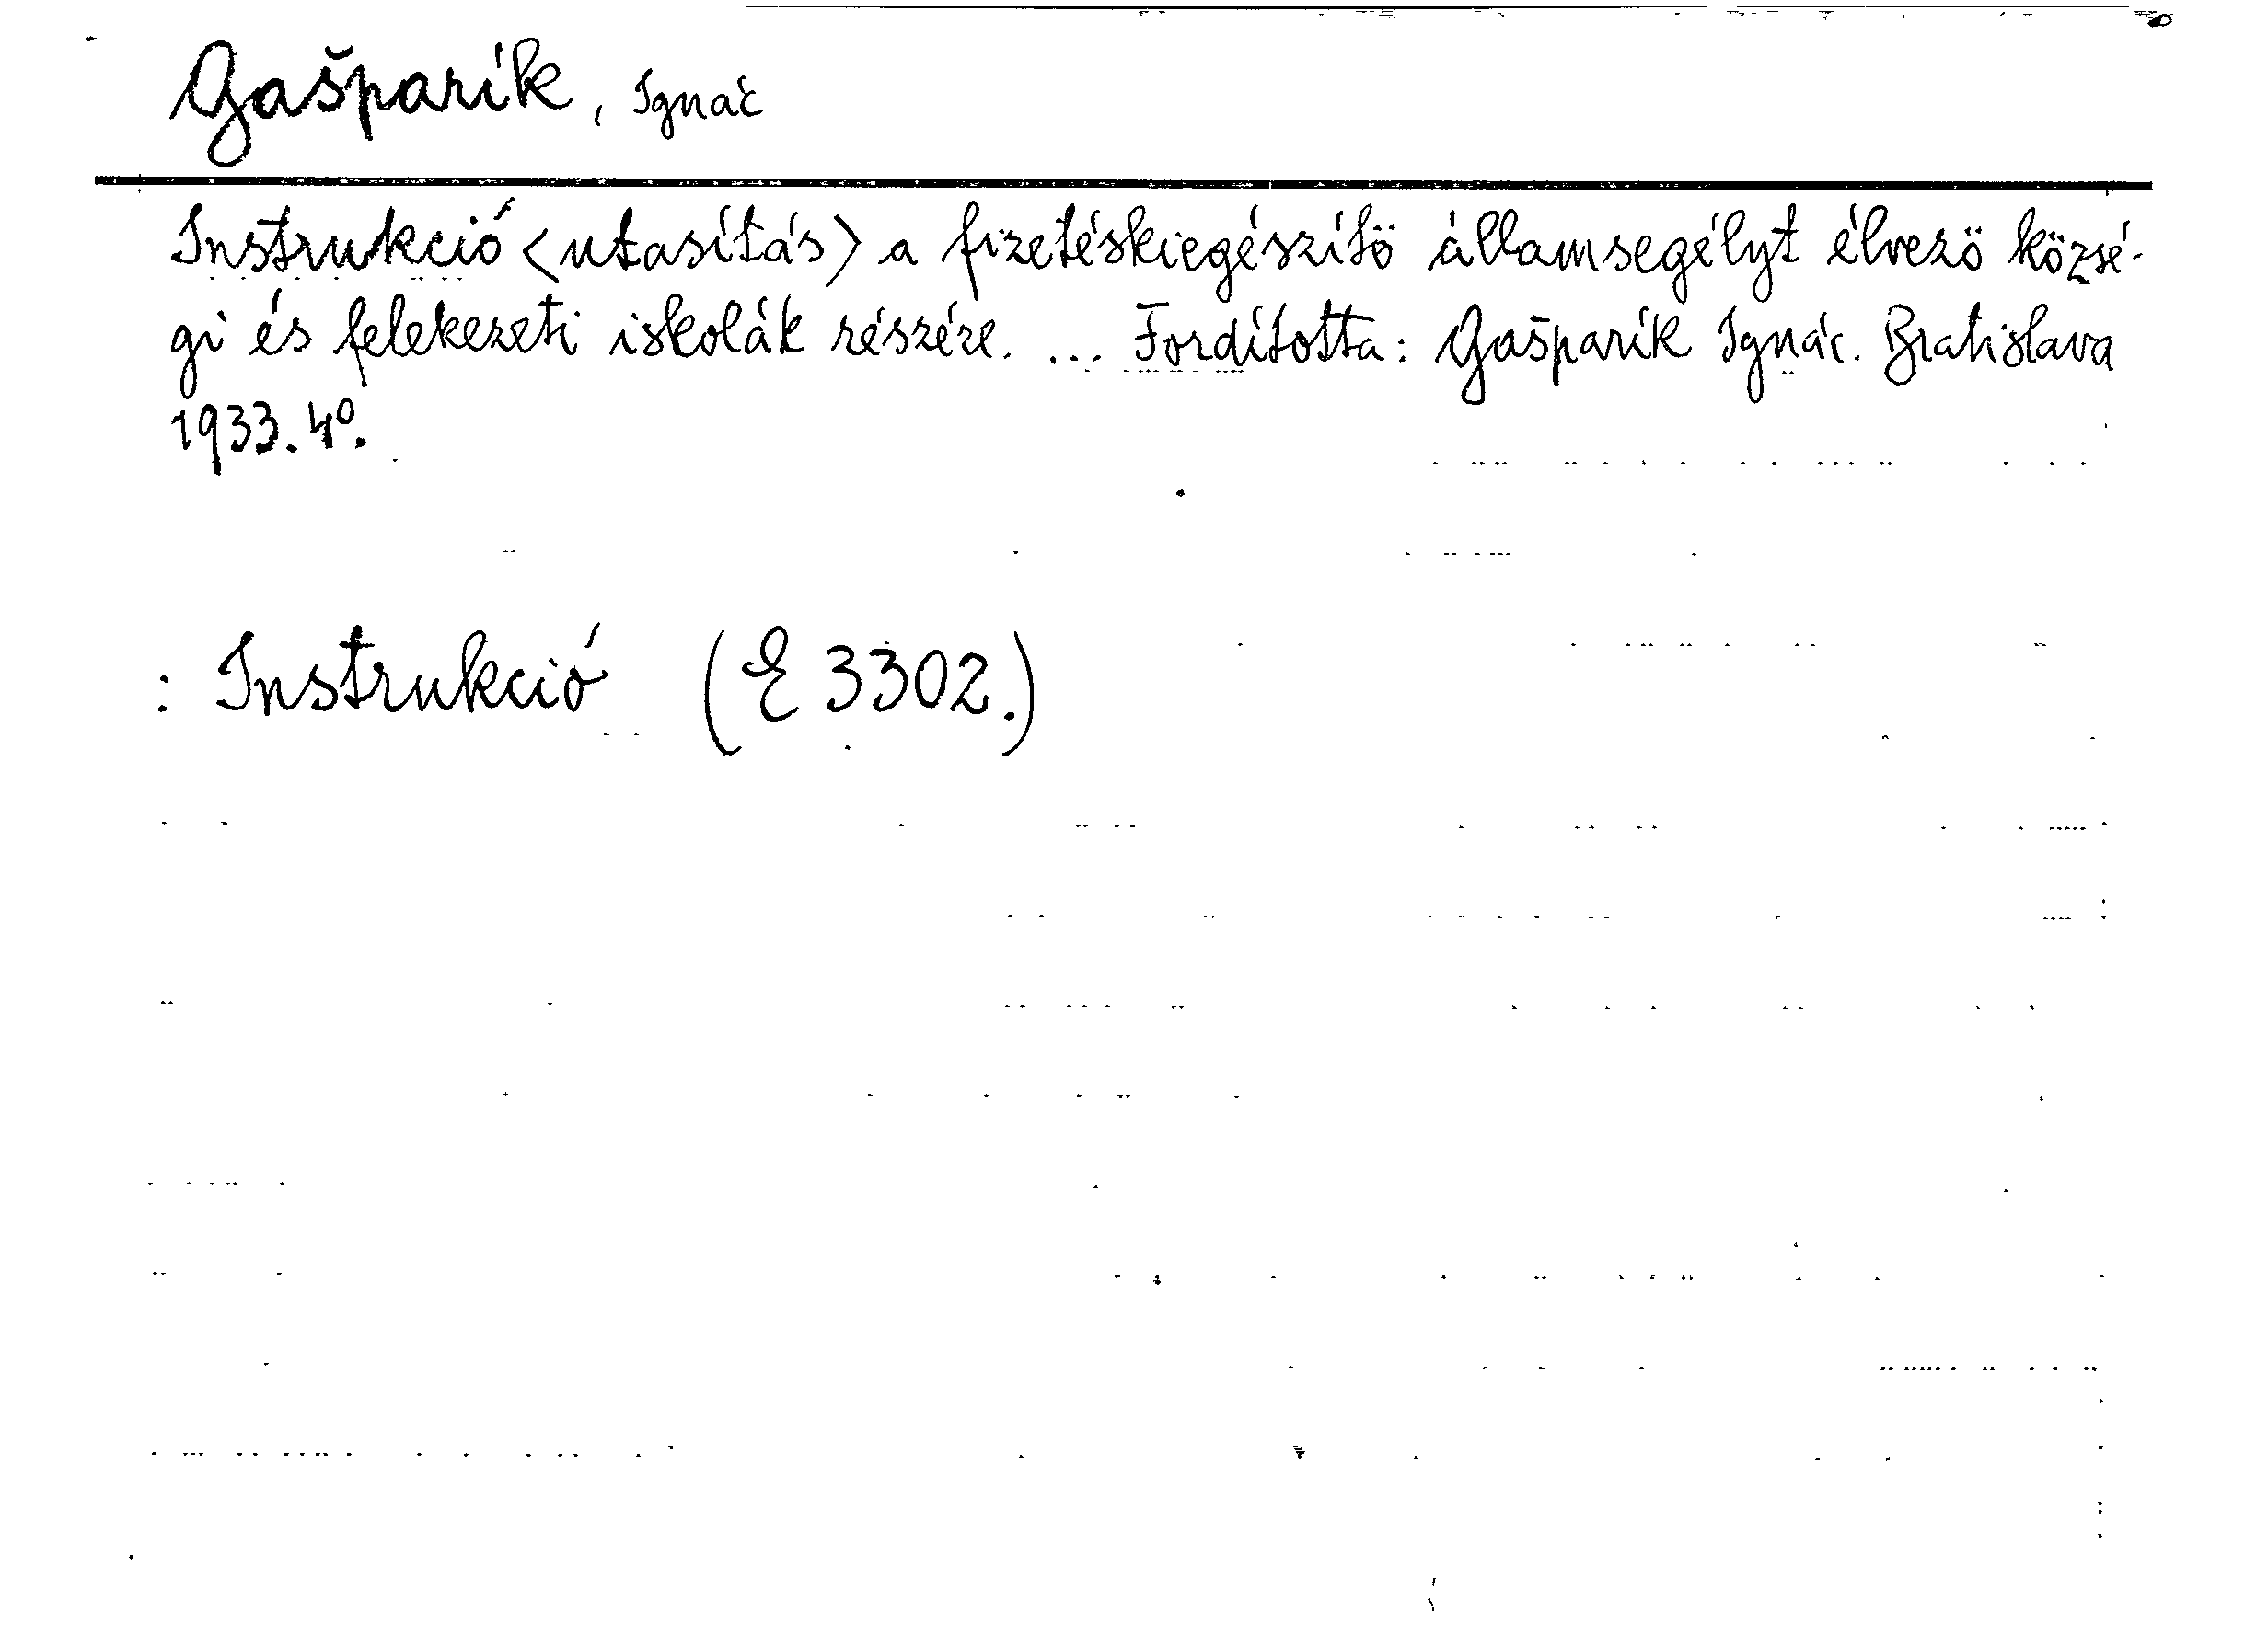 Gašparík, Ignác
Instrukció <utasítás> a fizetéskiegészítö államsegélyt élvezö közsé-
gi és felekezeti iskolák részére. ... Fordította: Gašparík Ignác. Bratislava
1933. 4º.
: Instrukció (E 3302.)